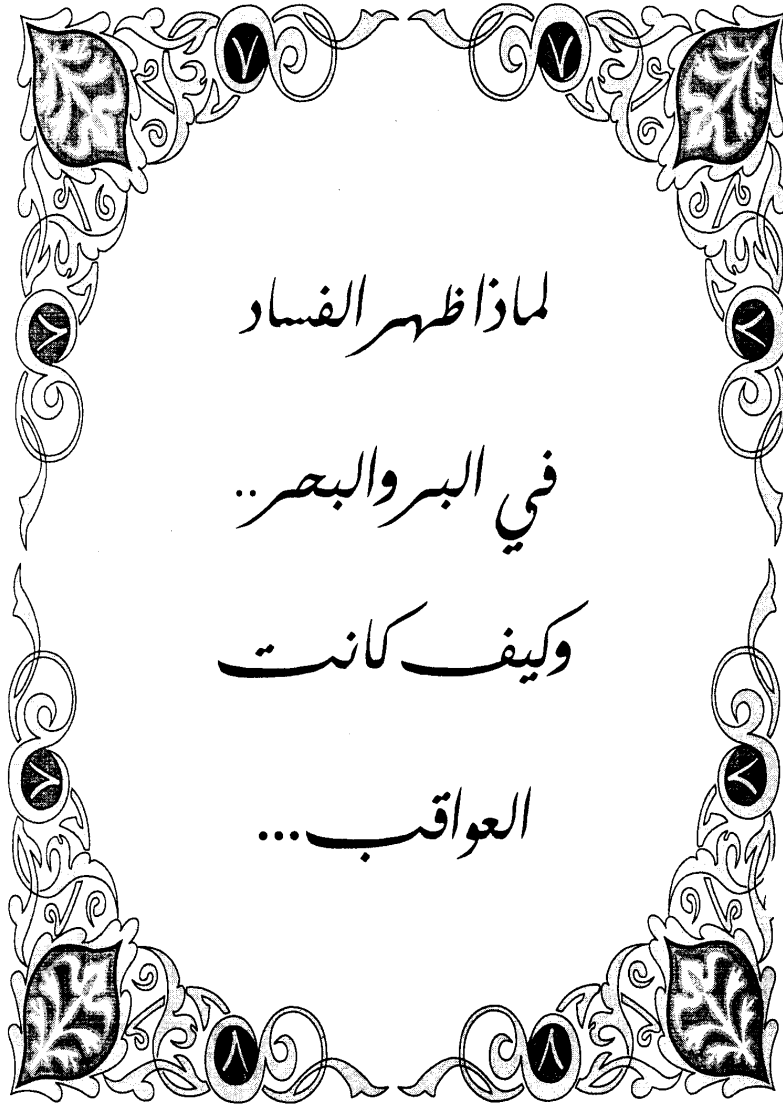 لماذا ظهر الفساد
في البر والبحر..
وكيف كانت
العواقب...